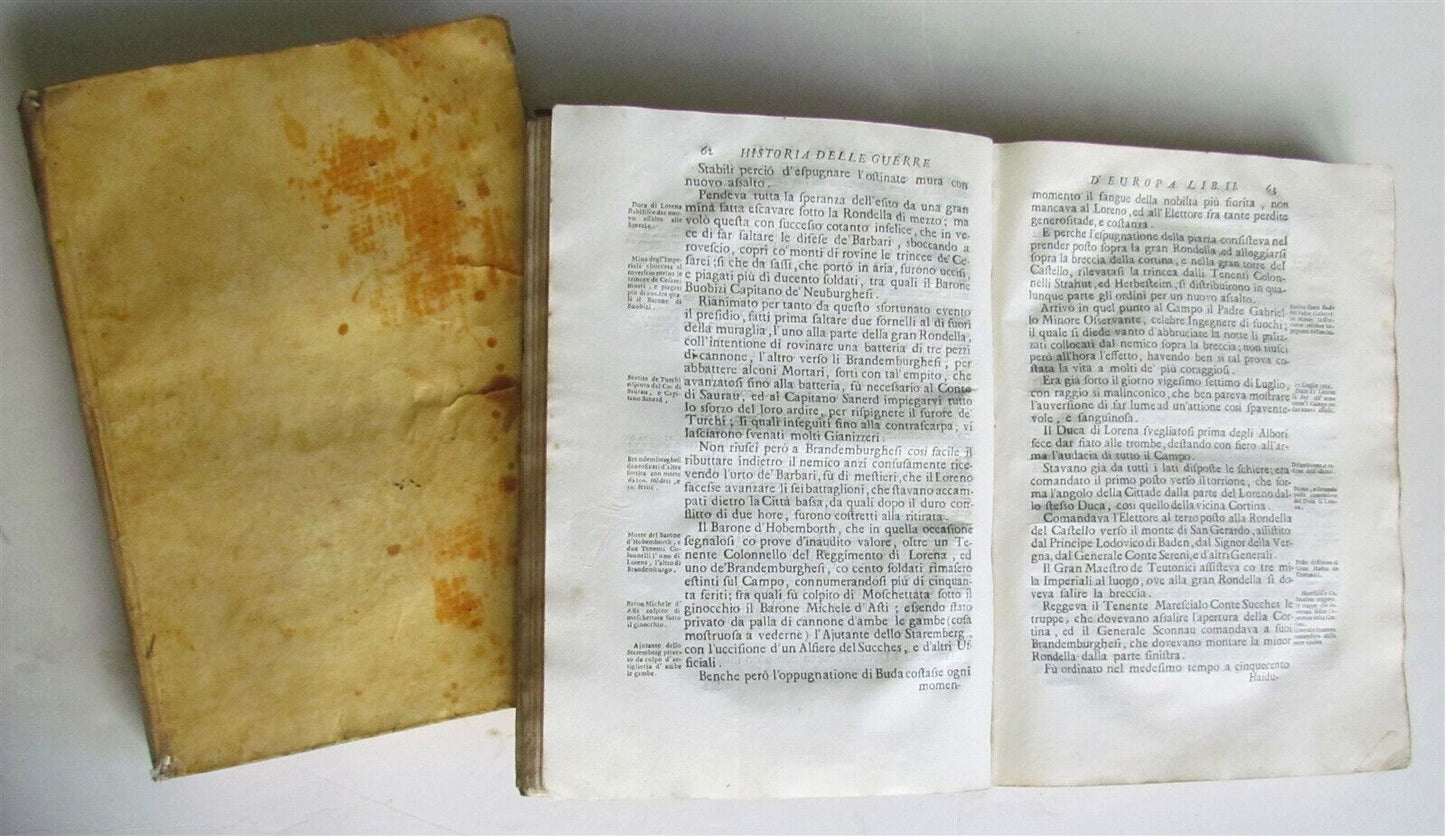 62 HISTORIA DELLE GUERRE
Stabili perciò d'eſpugnare l'oſtinate mura con
nuovo aſsalto.
Pendeva tutta la ſperanza dell'eſito da una gran
mina fatta eſcavare ſotto la Rondella di mezzo; ma
volò queſta con ſucceſso cotanto infelice, che in ve-
ce di far ſaltare le difeſe de'Barbari, sboccando a
roveſcio, coprì co'monti di rovine le trincee de'Ce-
ſarei: ſi che da ſaſsi, che portò in aria, furono ucciſi,
e piagati più di ducento ſoldati, tra quali il Barone
Buobizi Capitano de'Neuburgheſi.
Rianimato per tanto da queſto sfortunato evento
il preſidio, fatti prima ſaltare due fornelli al di fuori
della muraglia, l'uno alla parte della gran Rondella,
coll'intentione di rovinare una batteria di tre pezzi
di cannone, l'altro verſo li Brandemburgheſi, per
abbattere alcuni Mortari, ſortì con tal'empito, che
avanzatoſi fino alla batteria, fù neceſsario al Conte
di Saurau, ed al Capitano Sanerd impiegarvi tutto
lo sforzo del loro ardire, per riſpignere il furore de'
Turchi; li quali inſeguiti fino alla contraſcarpa, vi
laſciarono ſvenati molti Gianizzeri.
Non riuſcì però a Brandemburgheſi così facile il
ributtare indietro il nemico anzi confuſamente rice-
vendo l'urto de'Barbari, fù di meſtieri, che il Loreno
faceſse avanzare li ſei battaglioni, che ſtavano accam-
pati dietro la Città baſsa, da quali dopo il duro con-
flitto di due hore, furono coſtretti alla ritirata.
Il Barone d'Hobemborth, che in queſta occaſione
ſegnaloſſi co prove d'inaudito valore, oltre un Te-
nente Colonnello del Reggimento di Lorena, ed
uno de'Brandemburgheſi, co cento ſoldati rimaſero
eſtinti ſul Campo, connumerandoſi più di cinquan-
ta feriti; fra quali fù colpito di Moſchettata ſotto il
ginocchio il Barone Michele d'Aſti; eſsendo ſtato
privato da palla di cannone d'ambe le gambe (coſa
moſtruoſa a vederne) l'Ajutante dello Staremberg,
con l'ucciſione d'un Alfiere del Sucches, e d'altri Uf-
ficiali.
Benche però l'oppugnatione di Buda coſtaſse ogni
momen-
Duca di Lorena
ſtabiliſce dar nuo-
vo aſſalto alle
breccie.
Mina degl'Impe-
riali sboccata al
roveſcio
trincee de Ceſarei
morti, e piagati
più di
li il Barone di
Buobizi.
Sortita de Turchi
dal Co. di
Saurau, e Capi-
tano Sanerd.
Brandemburgheſi
d'altra
ſortita con morte
ſoldati, e
feriti.
Morte del Barone
d'Hobemborth, e
due Tenenti Co-
lonnelli l'uno di
Lorena, l'altro di
Brandemburgo.
Baron Michele d'
Aſti colpito di
moſchettata ſotto
il ginocchio.
Ajutante dello
Staremberg priva-
to da colpo d'ar-
tiglieria d'ambe
le gambe.
D'EUROPA LIB. II. 63
momento il ſangue della nobiltà più fiorita, non
mancava al Loreno, ed all'Elettore fra tante perdite
generoſitade, e coſtanza.
E perche l'eſpugnatione della piazza conſiſteva nel
prender poſto ſopra la gran Rondella, ed alloggiarſi
ſopra la breccia della cortina, e nella gran torre del
Caſtello, rilevataſi la trincea dalli Tenenti Colon-
nelli Strahut, ed Herbeſteim, ſi diſtribuirono in qua-
lunque parte gli ordini per un nuovo aſsalto.
Arrivò in quel punto al Campo il Padre Gabriel-
lo Minore Oſservante, celebre Ingegnere di fuochi;
il quale ſi diede vanto d'abbruciare la notte li paliz-
zati collocati dal nemico ſopra la breccia; non riuſcì
però all'hora l'effetto, havendo ben sì tal prova co-
ſtata la vita a molti de' più coraggioſi.
Era già ſorto il giorno vigeſimo ſettimo di Luglio,
con raggio sì malinconico, che ben pareva moſtrare
l'auverſione di far lume ad un'attione così ſpavente-
vole, e ſanguinoſa.
Il Duca di Lorena ſvegliatoſi prima degli Albori
fece dar fiato alle trombe, deſtando con fiero all'ar-
ma l'audacia di tutto il Campo.
Stavano già da tutti i lati diſpoſte le ſchiere; era
comandato il primo poſto verſo il torrione, che for-
ma l'angolo della Cittade dalla parte del Loreno dal-
lo ſteſso Duca, così quello della vicina Cortina.
Comandava l'Elettore al terzo poſto alla Rondella
del Caſtello verſo il monte di San Gerardo, aſſiſtito
dal Principe Lodovico di Baden, dal Signor della Ver-
gna, dal Generale Conte Sereni, e d'altri Generali.
Il Gran Maeſtro de Teutonici aſſiſteva co tre mi-
la Imperiali al luogo, ove alla gran Rondella ſi do-
veva ſalire la breccia.
Reggeva il Tenente Mareſcialo Conte Sucches le
truppe, che dovevano aſſalire l'apertura della Cor-
tina, ed il Generale Sconnau comandava a ſuoi
Brandemburgheſi, che dovevano montare la minor
Rondella dalla parte ſiniſtra.
Fù ordinato nel medeſimo tempo a cinquecento
Baidu-